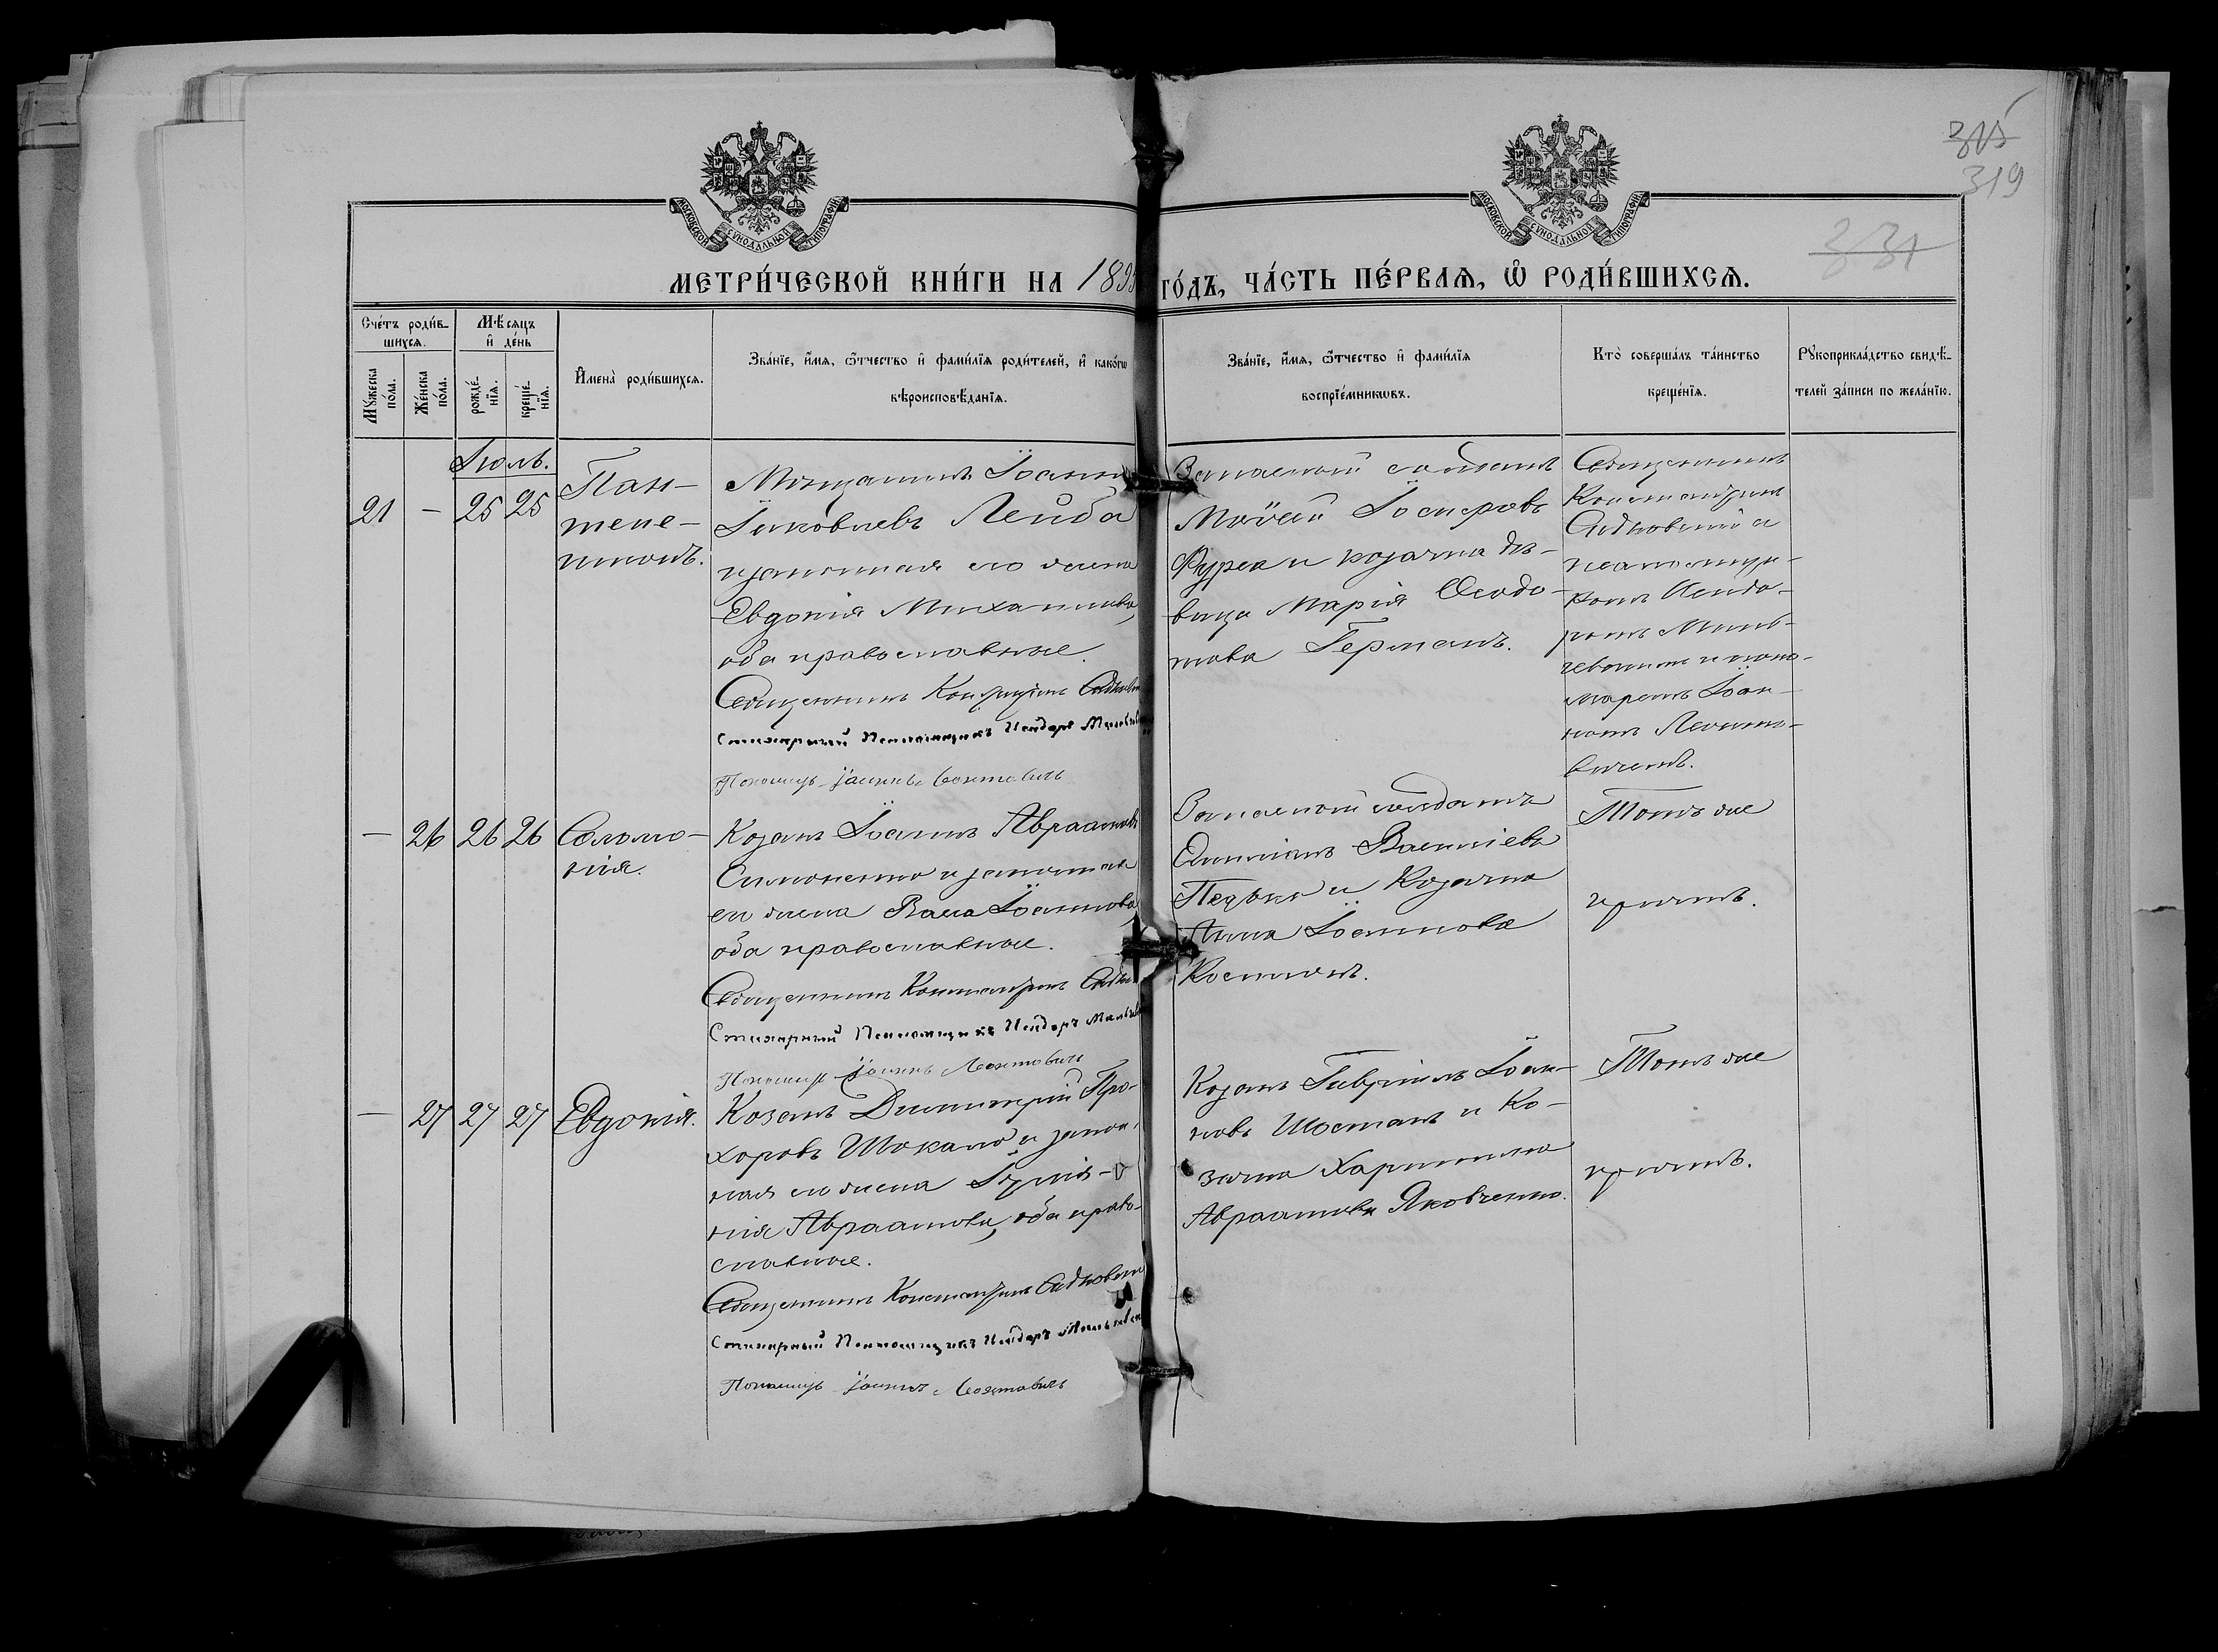 315
319
331
МОСКОВСКОЙ СѴНОДАЛЬНОЙ ТИПОГРАФІИ
МОСКОВСКОЙ СѴНОДАЛЬНОЙ ТИПОГРАФІИ
МЕТРИ́ЧЕСКОЙ КНИ́ГИ НА 1895 ГО́ДЪ, ЧА́СТЬ ПЕ́РВАѦ, Ѡ҆ РОДИ́ВШИХСѦ.
Сче́тъ роди́в-
шихся.
Мꙋ́жеска
по́ла.
Же́нска
по́ла.
Мѣ́сяцъ
и҆ де́нь
рожде́-
нїя.
креще́-
нїя.
И҆мена̀ роди́вшихся.
Зва́нїе, и҆́мя, ѻ҆́тчество и҆ фами́лїя роди́телей, и҆ како́гѡ
вѣроисповѣ́данїя.
Зва́нїе, и҆́мя, ѻ҆́тчество и҆ фами́лїя
воспрїе́мникѡвъ.
Кто̀ соверша́лъ та́инство
креще́нїя.
Рꙋкоприкла́дство свидѣ́-
телей за́писи по жела́нїю.
Іюль.
21 - 25 25
Пан-
теле-
имонъ.
Мѣщанинъ Іоаннъ
Іаковлевъ Лейба
и законная его жена
Евдокія Михаилова,
оба православные.
Священникъ Константинъ
Стихарный Псаломщикъ Исидоръ
Пономарь Іоаннъ Леонтовичъ
Запасный солдатъ
Моѵсей Іосифовъ
Фурса и козачка дѣ-
вица Марія Ѳеодо-
това Германъ.
Священникъ
Константинъ
Садковскій съ
псаломщи-
комъ Исидо-
ромъ Миль-
чевскимъ и поно-
маремъ Іоан-
номъ Леонто-
вичемъ.
- 26 26 26
Соломо-
нія.
Козакъ Іоаннъ Авраамовъ
Симоненко и законная
его жена Васса Іоаннова,
оба православные.
Священникъ Константинъ
Стихарный Псаломщикъ Исидоръ
Пономарь Іоаннъ Леонтовичъ
Запасный солдатъ
Василіевъ
и Козачка
Анна Іоаннова
Костюкъ.
Тотъ же
причтъ.
- 27 27 27
Евдокія.
Козакъ Димитрій Про-
хоровъ Шокало и закон-
ная его жена
нія Авраамова, оба право-
славные.
Священникъ Константинъ Садковскій
Стихарный Псаломщикъ Исидоръ
Пономарь Іоаннъ Леонтовичъ
Козакъ Гавріилъ Іоан-
новъ Шостакъ и Ко-
зачка Харитина
Авраамова Яковченко.
Тотъ же
причтъ.